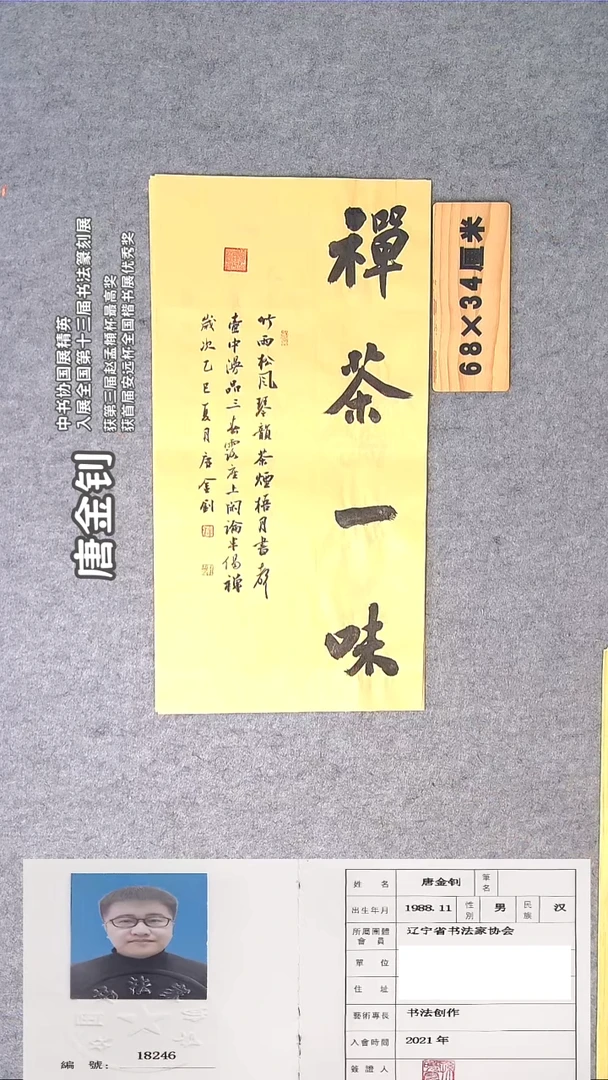 禪茶一味
竹雨松风琴韻茶煙梧月書聲
壺中漫品三春露座上闲論半偈禪
歲次乙巳夏月唐金釗
68×34厘米
中书协国展精英
入展全国第十三届书法篆刻展
获第三届赵孟頫杯最高奖
获首届安远杯全国楷书展优秀奖
唐金钊
編 號： 18246
姓 名 唐金钊 筆名
出生年月 1988.11 性別 男 民族 汉
所屬團體會員 辽宁省书法家协会
單 位
住 址
藝術專長 书法创作
入會時間 2021 年
簽證人